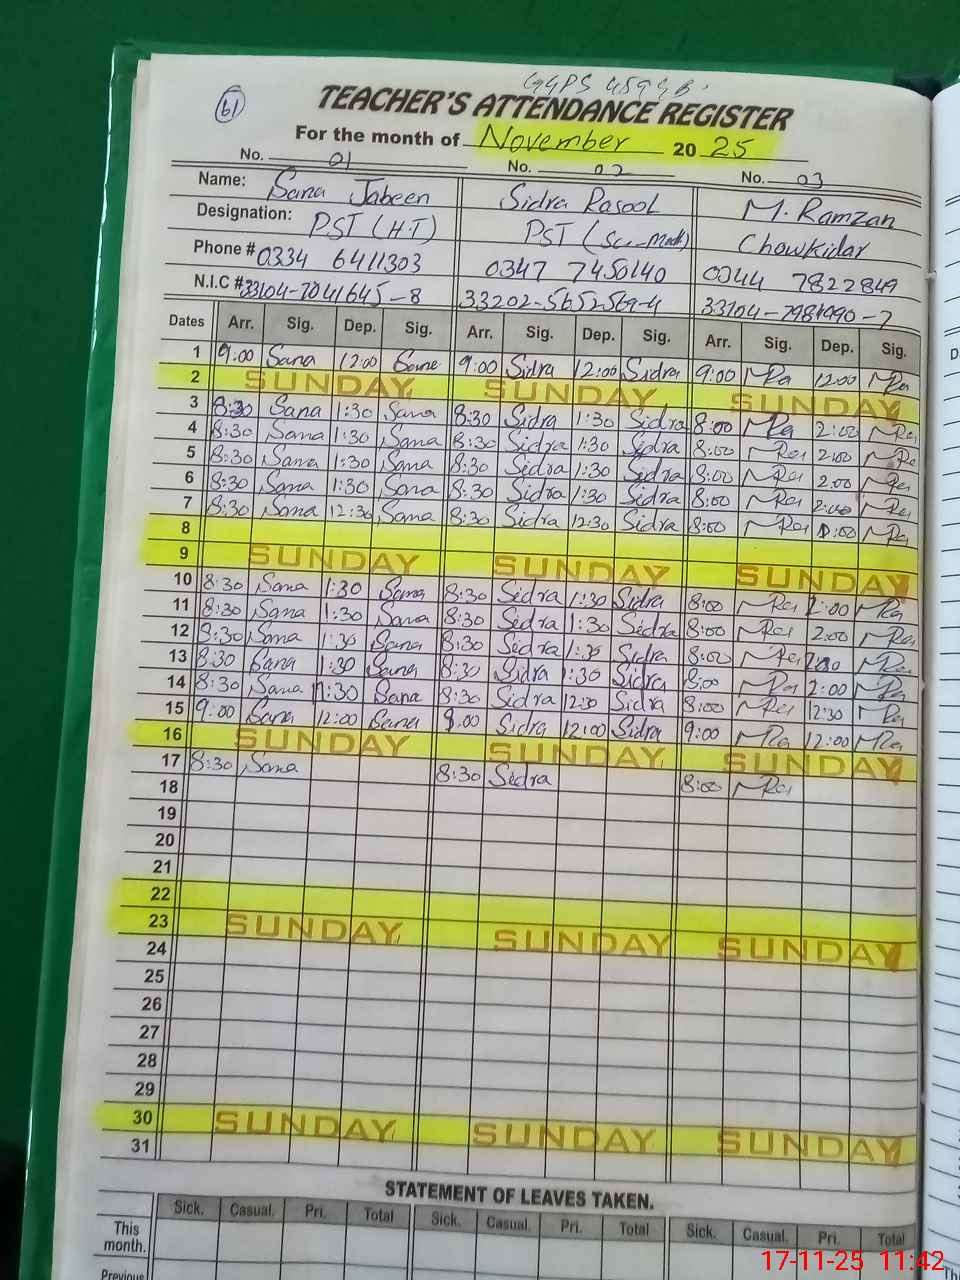 61
GGPS 459 GB
TEACHER'S ATTENDANCE REGISTER
For the month of November 20 25
No. 01 No. 02 No. 03
Name: Sana Jabeen Sidra Rasool M. Ramzan
Designation: PST (H.T) PST Chowkidar
Phone # 0334 6411303 0347 7450140 0344 7822849
N.I.C # 33104-7041645-8 33202-5652569-4 33104-7981990-7
Dates Arr. Sig. Dep. Sig. Arr. Sig. Dep. Sig. Arr. Sig. Dep. Sig.
1 9:00 Sana 12:00 Sana 9:00 Sidra 12:00 Sidra 9:00 MRa 12:00 MRa
2 SUNDAY SUNDAY SUNDAY
3 8:30 Sana 1:30 Sana 8:30 Sidra 1:30 Sidra 8:00 MRa 2:00 MRa
4 8:30 Sana 1:30 Sana 8:30 Sidra 1:30 Sidra 8:00 MRa 2:00 MRa
5 8:30 Sana 1:30 Sana 8:30 Sidra 1:30 Sidra 8:00 MRa 2:00 MRa
6 8:30 Sana 1:30 Sana 8:30 Sidra 1:30 Sidra 8:00 MRa 2:00 MRa
7 8:30 Sana 12:30 Sana 8:30 Sidra 12:30 Sidra 8:00 MRa 1:00 MRa
8
9 SUNDAY SUNDAY SUNDAY
10 8:30 Sana 1:30 Sana 8:30 Sidra 1:30 Sidra 8:00 MRa 2:00 MRa
11 8:30 Sana 1:30 Sana 8:30 Sidra 1:30 Sidra 8:00 MRa 2:00 MRa
12 8:30 Sana 1:30 Sana 8:30 Sidra 1:30 Sidra 8:00 MRa 2:00 MRa
13 8:30 Sana 1:30 Sana 8:30 Sidra 1:30 Sidra 8:00 MRa 2:00 MRa
14 8:30 Sana 1:30 Sana 8:30 Sidra 12:30 Sidra 8:00 MRa 12:30 MRa
15 9:00 Sana 12:00 Sana 9:00 Sidra 12:00 Sidra 9:00 MRa 12:00 MRa
16 SUNDAY SUNDAY SUNDAY
17 8:30 Sana 8:30 Sidra 8:00 MRa
18
19
20
21
22
23 SUNDAY SUNDAY SUNDAY
24
25
26
27
28
29
30 SUNDAY SUNDAY SUNDAY
31
STATEMENT OF LEAVES TAKEN.
Sick. Casual. Pri. Total Sick. Casual. Pri. Total Sick. Casual. Pri. Total
This month.
Previous
17-11-25 11:42